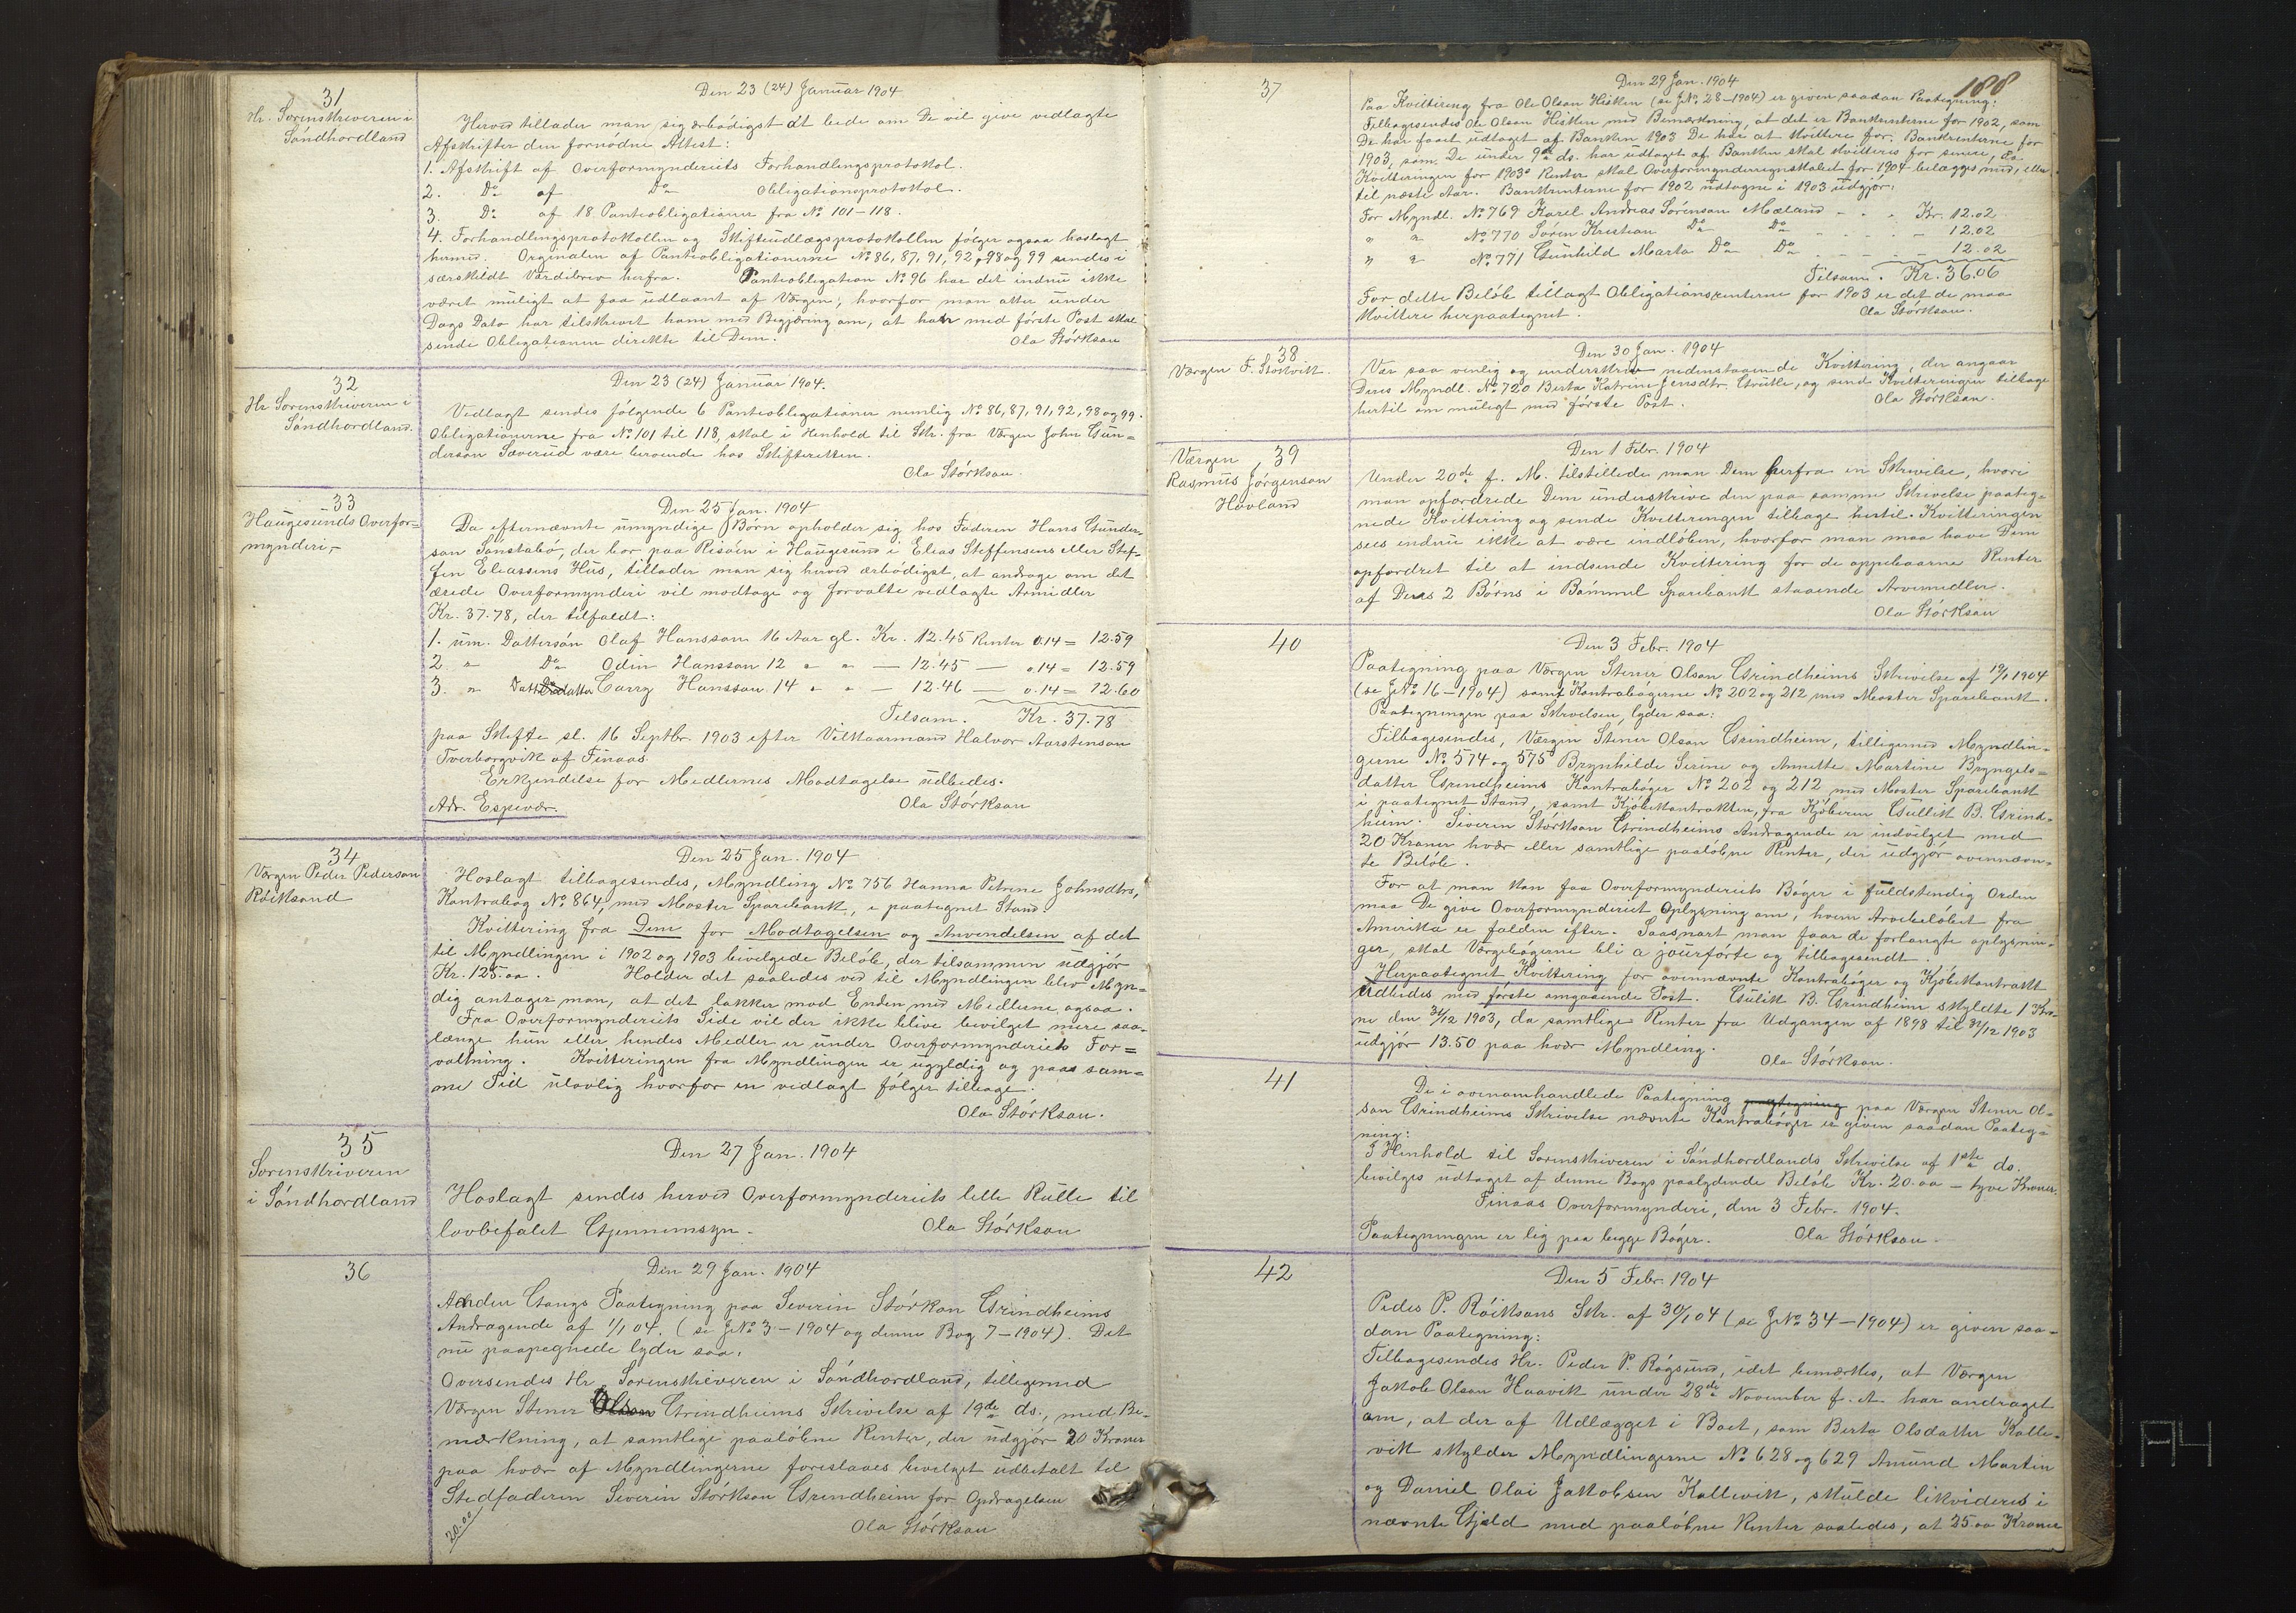 31
Hr. Sorenskriveren i
Söndhordland
Den 23 (24) Januar 1904
Herved tillader man sig ærbødigst at bede om De vil give vedlagte
Afskrifter den fornødne Attest:
1. Afskrift af Overformynderiets Forhandlingsprotokol.
2. Do af Do Obligationsprotokol.
3. Do af 18 Panteobligationer fra No 101-118.
4. Forhandlingsprotokollen og Skifteudlægsprotokollen følger ogsaa hoslagt
herved. Orginalen af Panteobligationerne No 86, 87, 91, 92, 98 og 99 sendes i
særskildt Værdibrev herfra. Panteobligation No 96 har det indnu ikke
været muligt at faa udlaant af Værgen, hvorfor man atter under
Dags Dato har tilskrevet ham med Begjæring om, at han med første Post skal
sende Obligationen direkte til Dem.
Ola Störkson
32
Hr Sorenskriveren i
Söndhordland.
Den 23 (24) Januar 1904.
Vedlagt sendes følgende 6 Panteobligationer nemlig No 86, 87, 91, 92, 98 og 99.
Obligationerne fra No 101 til 118, skal i Henhold til Skr. fra Værgen John Gun=
derson Sæverud være beroende hos Skifteretten.
Ola Störkson.
33
Haugesunds Overfor=
mynderi,-
Den 25 Jan. 1904
Da efternævnte umyndige Børn opholder sig hos Faderen Hans Gunder-
son Sönstabö, der bor paa Risöen i Haugesund i Elias Steffensens eller Stef-
fen Eliassens Hus, tillader man sig herved ærbödigst, at andrage om det
ærede Overformynderi vil modtage og forvalte vedlagte Armidler
Kr. 37.78, der tilfaldt:
1. um. Dattersön Olaf Hansson 16 Aar gl. Kr. 12.45 Renter 0.14 = 12.59
2. " Do Odin Hansson 12 " " — 12.45 — 0.14 = 12.59
3. " Datterdatter Carry Hansson 14 " " — 12.46 — 0.14 = 12.60
Tilsam. Kr. 37.78
paa Skifte sl. 16 Septbr. 1903 efter Vilkaarmand Halvor Aarstenson
Tverborgvik af Finaas.
Erkjendelse for Medlernes Modtagelse udbedes.
Adr. Espevær.
Ola Störkson
34
Værgen Peder Pederson
Röiksund
Den 25 Jan. 1904
Hoslagt tilbagesendes, Myndling No 756 Hanna Petrine Johnsdtrs,
Kontrabog No 864, med Moster Sparebank, i paategnet Stand.
Kvittering fra Dem for Modtagelsen og Anvendelsen af det
til Myndlingen i 1902 og 1903 bevilgede Beløb, der tilsammen udgjør
Kr. 125.00. Holder det saaledes ved til Myndlingen blev Myn-
dig antager man, at det lakker mod Enden med Medlerne, ogsaa.
Fra Overformynderiets Side vil der ikke blive bevilget mere saa-
længe hun eller hendes Medler er under Overformynderiets For=
valtning. Kvitteringen fra Myndlingen er ugyldig og paa sam=
me Tid ulovlig hvorfor en vedlagt følger tilbage.
Ola Störkson.
35
Sorenskriveren
i Söndhordland
Den 27 Jan. 1904
Hoslagt sendes herved Overformynderiets lette Rulle til
lovbefalet Gjennemsyn.
Ola Störkson
36
Den 29 Jan. 1904
Anden Gangs Paategning paa Severin Störkson Grindheims
Andragende af 1/1 04. (se JNo 3 - 1904 og denne Bog 7 - 1904). Det
nu paapegnede lyder saa,
Oversendes Hr Sorenskriveren i Söndhordland, tilligemed
Værgen Stener Olson Grindheims Skrivelse af 19de ds., med Be-
mærkning, at samtlige paaløbne Renter, der udgjør 20 Kroner
paa hver af Myndlingerne foreslaaes bevilget udbetalt til
Stedfaderen Severin Störkson Grindheim for Opdragelsen
20.00
Ola Störkson
188
37
Den 29 Jan. 1904
Paa Kvittering fra Ole Olson Hisken (se JNo 28-1904) er given saadan Paategning:
Tilbagesendes Ole Olson Hisken med Bemærkning, at det er Bankrenterne for 1902, som
De har faaet udtaget af Banken 1903 De har at kvittere for. Bankrenterne for
1903, som De under 9de ds. har udtaget af Banken skal kvitteres for senere, da
Kvitteringen for 1903s Renter skal Overformynderregnskabet for 1904 belægges med, eller
til næste Aar. Bankrenterne for 1902 udtagne i 1903 udgjør:
For Myndl. No 769 Karl Andreas Sörenson Mæland - - - Kr. 12.02
" " No 770 Sören Kristian Do Do - - - 12.02
" " No 771 Gunhild Marta Do Do - - - 12.02
Tilsam. Kr. 36.06
For dette Beløb tillagt Obligationsrenterne for 1903 er det de maa
kvittere herpaategnet.
Ola Störkson.
38
Værgen F. Stokvik.
Den 30 Jan. 1904
Vær saa venlig og underskriv nedenstaaende Kvittering, der angaar
Deres Myndl. No 720 Berta Katrine Jensdtr. Grutle, og send Kvitteringen tilbage
hertil om muligt med første Post.
Ola Störkson.
Værgen 39
Rasmus Jørgenson
Hovland
Den 1 Febr. 1904
Under 20de f. M. tilstillede man Dem herfra en Skrivelse, hvori
man opfordrede Dem underskrive den paa samme Skrivelse paateg=
nede Kvittering og sende Kvitteringen tilbage hertil. Kvitteringen
sees endnu ikke at være indløben, hvorfor man maa have Dem
opfordret til at indsende Kvittering for de oppebaarne Renter
af Deres 2 Børns i Bömmel Sparebank staaende Arvemedler.
Ola Störkson
40
Den 3 Febr. 1904
Paategning paa Værgen Stener Olson Grindheims Skrivelse af 19/1 1904
(se JNo 16-1904) samt Kontrabøgerne No 202 og 212 med Moster Sparebank.
Paategningen paa Skrivelsen, lyder saa:
Tilbagesendes, Værgen Stener Olson Grindheim, tilligemed Myndlin-
gerne No 574 og 575 Brynhilde Serine og Annette Martine Bryngels=
datter Grindheims Kontrabøger No 202 og 212 med Moster Sparebank
i paategnet Stand, samt Kjöbekontrakten, fra Kjöberen Gullik B. Grind-
heim. Severin Störkson Grindheims Andragende er indvilget med
20 Kroner hver eller samtlige paaløbne Renter, der udgjør ovennævn-
te Beløb.
For at man kan faa Overformynderiets Bøger i fuldstendig Orden
maa De give Overformynderiet Oplysning om, hvem Arvebeløbet fra
Amerika er falden efter. Saasnart man faar de forlangte oplysnin-
ger, skal Værgebøgerne bli a jourførte og tilbagesendt.
Herpaategnet Kvittering for ovennævnte Kontrabøger og Kjöbekontrakt
udbedes med første omgaaende Post. Gullik B. Grindheim skyldte 1 Kro-
ne den 31/12 1903, da samtlige Renter fra Udgangen af 1898 til 31/12 1903
udgjör 13.50 paa hver Myndling.
Ola Störkson.
41
De i ovenomhandlede Paategning paategning paa Værgen Stener Ol-
son Grindheims Skrivelse nævnte Kontrabøger er given saadan Paateg=
ning:
I Henhold til Sorenskriveren i Söndhordlands Skrivelse af 1ste ds.
bevilges udtaget af denne Bogs paalydende Beløb Kr. 20.00 - tyve Kroner.
Finaas Overformynderi, den 3 Febr. 1904.
Paategningen er lig paa begge Bøger.
Ola Störkson.
42
Den 5 Febr. 1904
Peder P. Röiksuns Skr. af 30/1 04 (se JNo 34-1904) er given saa-
dan Paategning:
Tilbagesendes Hr. Peder P. Rögsund, idet bemærkes, at Værgen
Jakob Olson Haavik under 28de November f. A. har andraget
om, at der af Udlægget i Boet, som Berta Olsdatter Kalle-
vik skylder Myndlingerne No 628 og 629 Amund Martin
og Daniel Olai Jakobsen Kallevik, skulde likvideres i
nævnte Gjæld med paaløbne Renter saaledes, at 25.00 Kroner